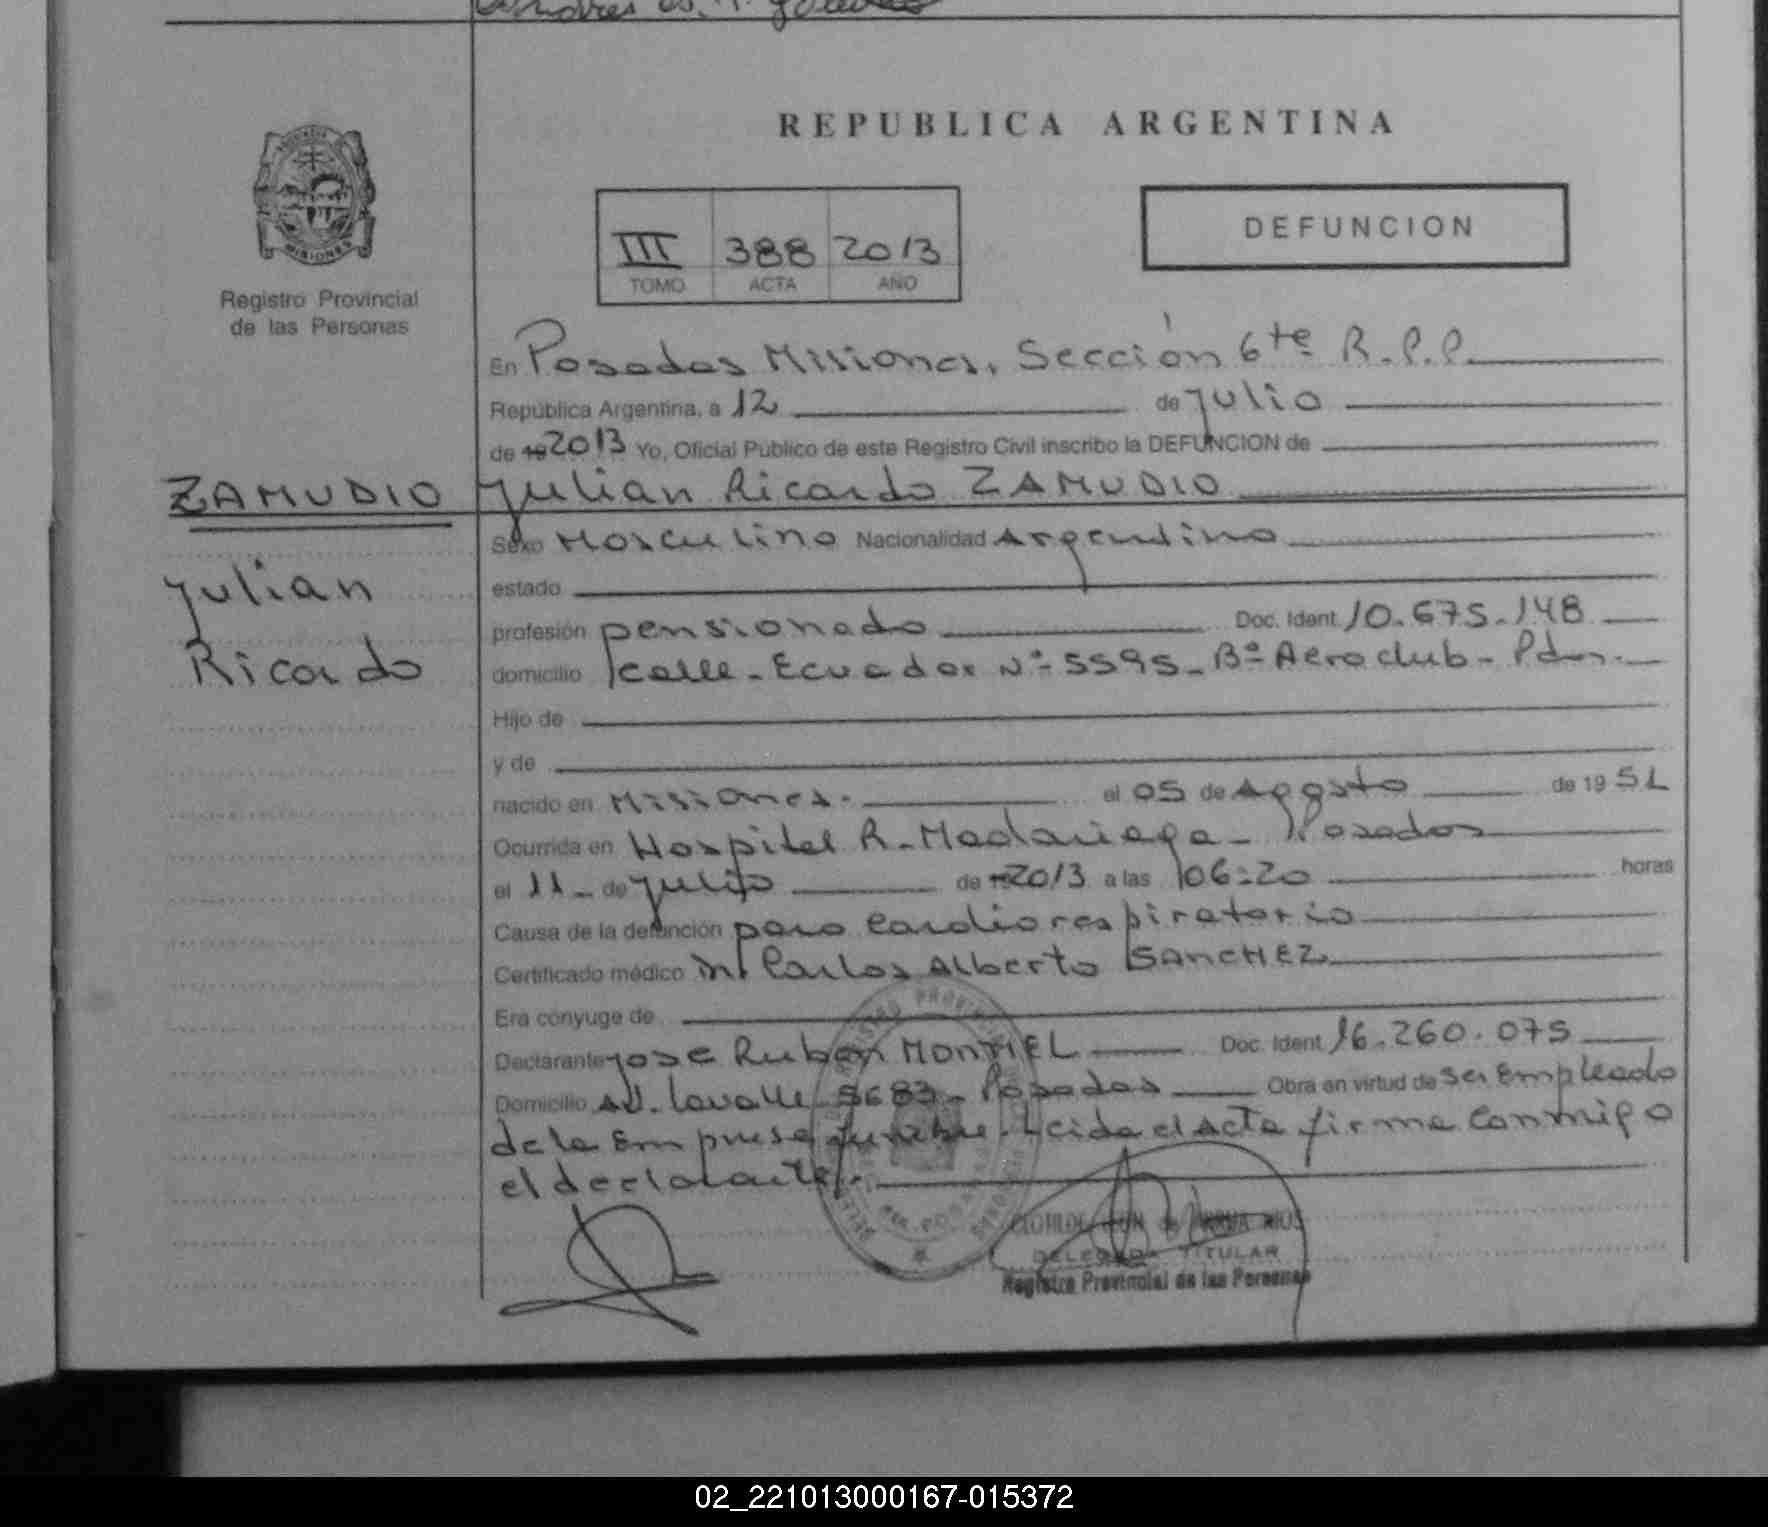 REPUBLICA ARGENTINA
PROVINCIA
MISIONES
Registro Provincial
de las Personas
III 388 2013
TOMO ACTA AÑO
DEFUNCION
En Posadas Misiones, Sección 6te R.P.P.
República Argentina, a 12 de julio
de 19 2013 Yo, Oficial Público de este Registro Civil inscribo la DEFUNCION de
ZAMUDIO
Julian Ricardo
Julian Ricardo ZAMUDIO
Sexo Masculino Nacionalidad Argentino
estado
profesión pensionado Doc. Ident. 10.675.148
domicilio calle - Ecuador Nº 5595 - Bº Aeroclub - Pdas.
Hijo de
y de
nacido en Misiones. el 05 de Agosto de 19 51
Ocurrida en Hospital R. Madariaga - Posadas
el 11 - de julio de 19 2013 a las 06:20 horas
Causa de la defunción paro cardiorespiratorio
Certificado médico Dr. Carlos Alberto SANCHEZ
Era cónyuge de
Declarante Jose Ruben MONTIEL Doc. Ident. 16.260.075
Domicilio Av. Lavalle 5683 - Posadas Obra en virtud de ser Empleado
de la Empresa funebre. Leida el Acta firma conmigo
el declarante.
DELEGADA TITULAR
Registro Provincial de las Personas
02_221013000167-015372